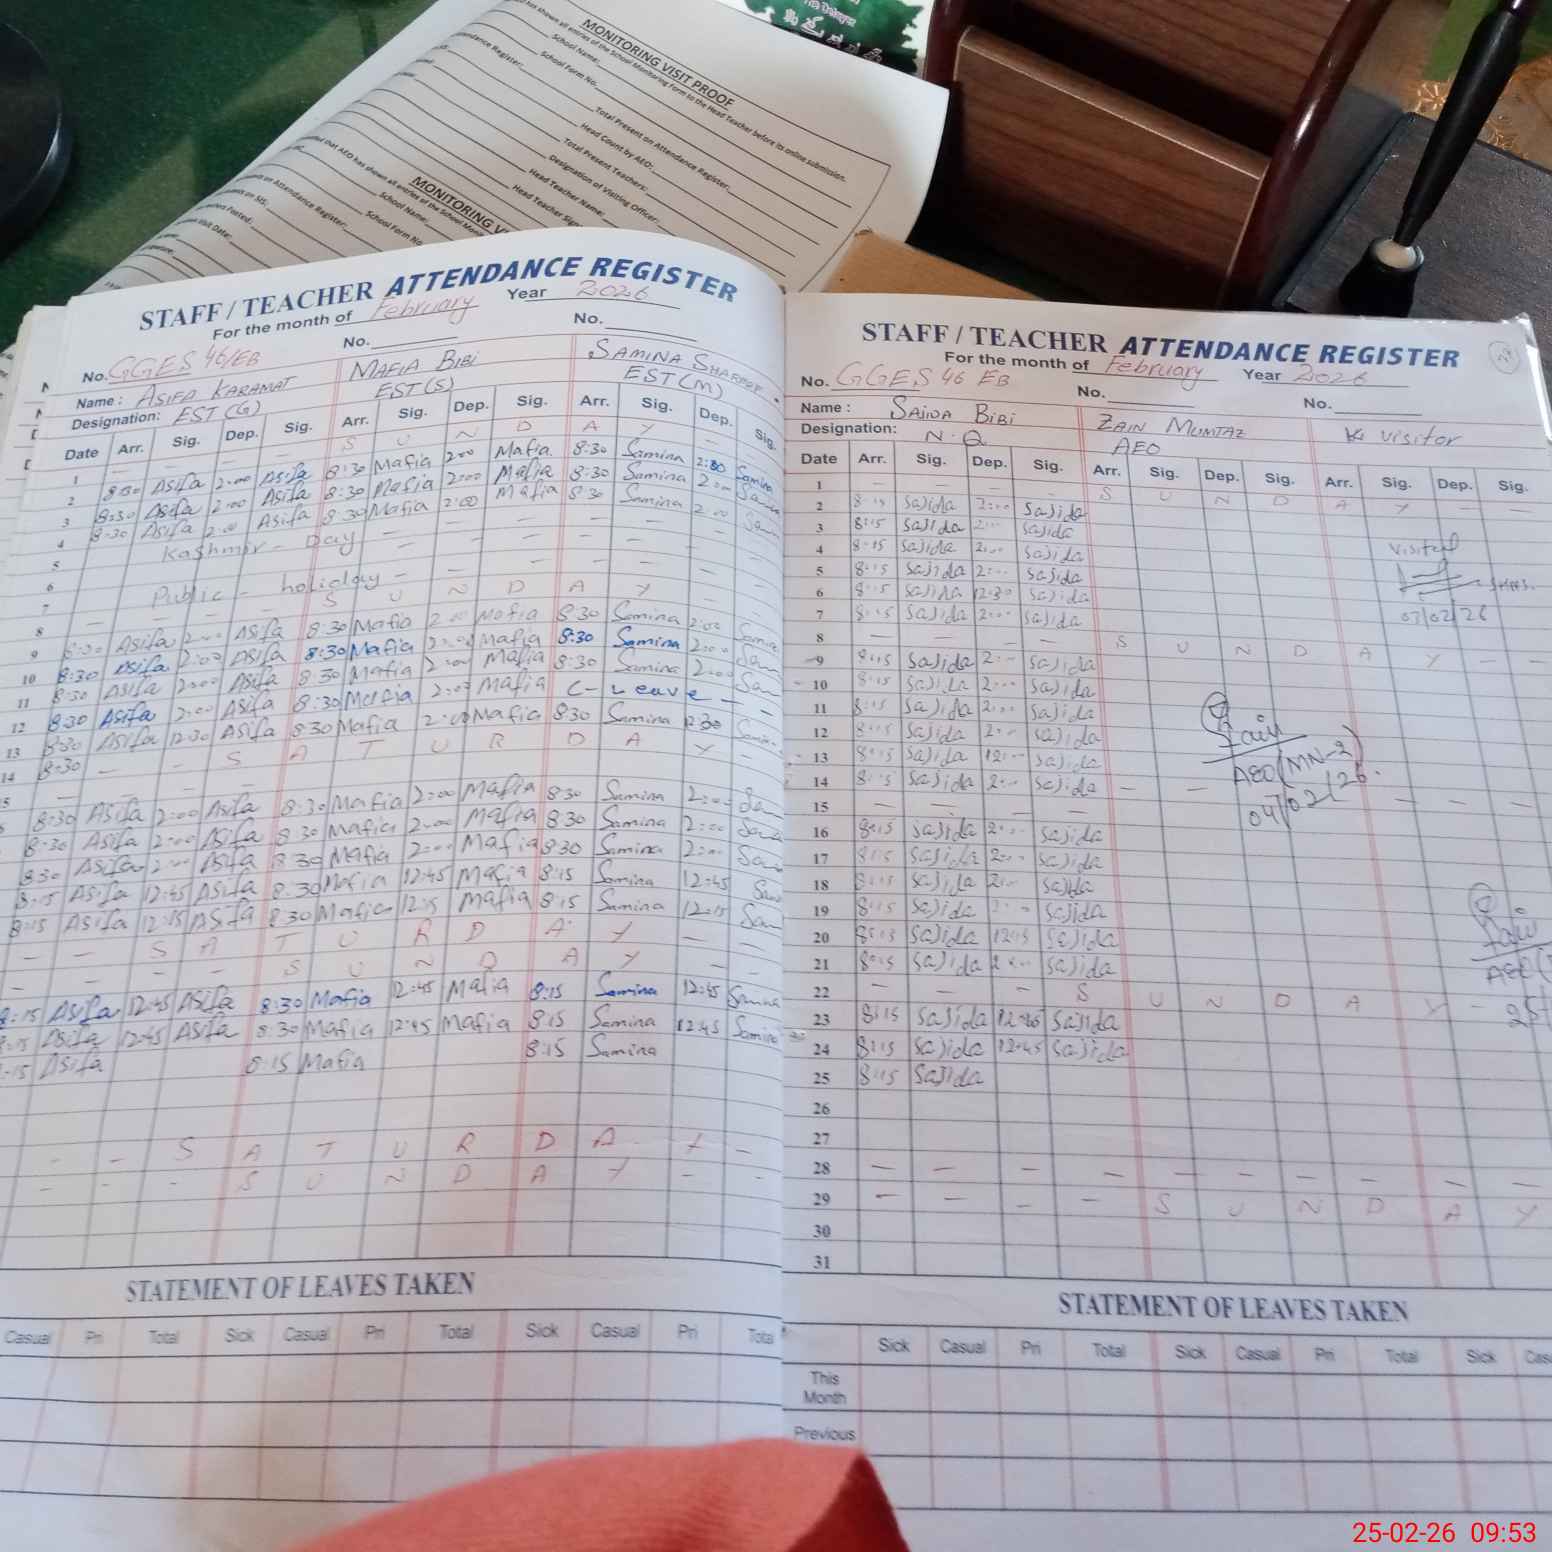 MONITORING VISIT PROOF
has shown all entries of the School Monitoring Form to the Head Teacher before its online submission.
School Name:
School Form No.
Total Present on Attendance Register:
Head Count by AEO:
Total Present Teachers:
Designation of Visiting Officer:
Head Teacher Name:
Head Teacher Sign
MONITORING VI
School Name:
School Form No
STAFF / TEACHER ATTENDANCE REGISTER
For the month of February Year 2026
No. GGES 46/EB No. No.
Name : ASIFA KARAMAT MAFIA BIBI SAMINA SHAREEF
Designation: EST (G) EST(S) EST(M)
Date Arr. Sig. Dep. Sig. Arr. Sig. Dep. Sig. Arr. Sig. Dep. Sig.
1 - - - - S U N D A Y -
2 8:30 Asifa 2:00 Asifa 8:30 Mafia 2:00 Mafia 8:30 Samina 2:00 Samina
3 8:30 Asifa 2:00 Asifa 8:30 Mafia 2:00 Mafia 8:30 Samina 2:00 Sam
4 8:30 Asifa 2:00 Asifa 8:30 Mafia 2:00 Mafia 8:30 Samina 2:00 Sam
5 Kashmir - Day - - - - -
6 Public - holiday - - - - -
7
8 - - - S U N D A Y -
9 8:30 Asifa 2:00 Asifa 8:30 Mafia 2:00 Mafia 8:30 Samina 2:00 Samina
10 8:30 Asifa 2:00 Asifa 8:30 Mafia 2:00 Mafia 8:30 Samina 2:00 Sam
11 8:30 Asifa 2:00 Asifa 8:30 Mafia 2:00 Mafia 8:30 Samina 2:00 Sam
12 8:30 Asifa 2:00 Asifa 8:30 Mafia 2:00 Mafia C - Leave - -
13 8:30 Asifa 12:30 Asifa 8:30 Mafia 2:00 Mafia 8:30 Samina 12:30 Samin
14 8:30 - - S A T U R D A Y -
8:30 Asifa 2:00 Asifa 8:30 Mafia 2:00 Mafia 8:30 Samina 2:00 Sam
8:30 Asifa 2:00 Asifa 8:30 Mafia 2:00 Mafia 8:30 Samina 2:00 Sam
8:30 Asifa 2:00 Asifa 8:30 Mafia 2:00 Mafia 8:30 Samina 2:00 Sam
8:15 Asifa 12:45 Asifa 8:30 Mafia 12:45 Mafia 8:15 Samina 12:45 Sam
8:15 Asifa 12:15 Asifa 8:30 Mafia 12:15 Mafia 8:15 Samina 12:15 Sam
- - S A T U R D A Y - -
- - - S U N D A Y - -
8:15 Asifa 12:45 Asifa 8:30 Mafia 12:45 Mafia 8:15 Samina 12:45 Samina
8:15 Asifa 12:45 Asifa 8:30 Mafia 12:45 Mafia 8:15 Samina 12:45 Samina
:15 Asifa 8:15 Mafia 8:15 Samina
- - S A T U R D A Y -
- - - S U N D A Y - -
STATEMENT OF LEAVES TAKEN
Casual Pri Total Sick Casual Pri Total Sick Casual Pri Total
STAFF / TEACHER ATTENDANCE REGISTER
For the month of February Year 2026
No. GGES 46 EB No. No.
Name : SAJDA BIBI ZAIN MUMTAZ visitor
Designation: N.Q AEO
Date Arr. Sig. Dep. Sig. Arr. Sig. Dep. Sig. Arr. Sig. Dep. Sig.
1 - - - - S U N D A Y - -
2 8:15 Sajida 2:00 Sajida
3 8:15 Sajida 2:00 Sajida
4 8:15 Sajida 2:00 Sajida visited
5 8:15 Sajida 2:00 Sajida
6 8:15 Sajida 12:30 Sajida
7 8:15 Sajida 2:00 Sajida 03/02/26
8 - - - - S U N D A Y - -
9 8:15 Sajida 2:00 Sajida
10 8:15 Sajida 2:00 Sajida
11 8:15 Sajida 2:00 Sajida
12 8:15 Sajida 2:00 Sajida Zain
13 8:15 Sajida 12:00 Sajida AEO (MN-2)
14 8:15 Sajida 2:00 Sajida - - 04/02/26.
15 - - - - - -
16 8:15 Sajida 2:00 Sajida
17 8:15 Sajida 2:00 Sajida
18 8:15 Sajida 2:00 Sajida
19 8:15 Sajida 2:00 Sajida
20 8:15 Sajida 12:15 Sajida Zain
21 8:15 Sajida 2:00 Sajida AEO (
22 - - - - S U N D A Y - 25
23 8:15 Sajida 12:45 Sajida
24 8:15 Sajida 12:45 Sajida
25 8:15 Sajida
26
27
28 - - - - - - - - - - -
29 - - - - S U N D A Y
30
31
STATEMENT OF LEAVES TAKEN
Sick Casual Pri Total Sick Casual Pri Total Sick Cas
This Month
Previous
25-02-26 09:53